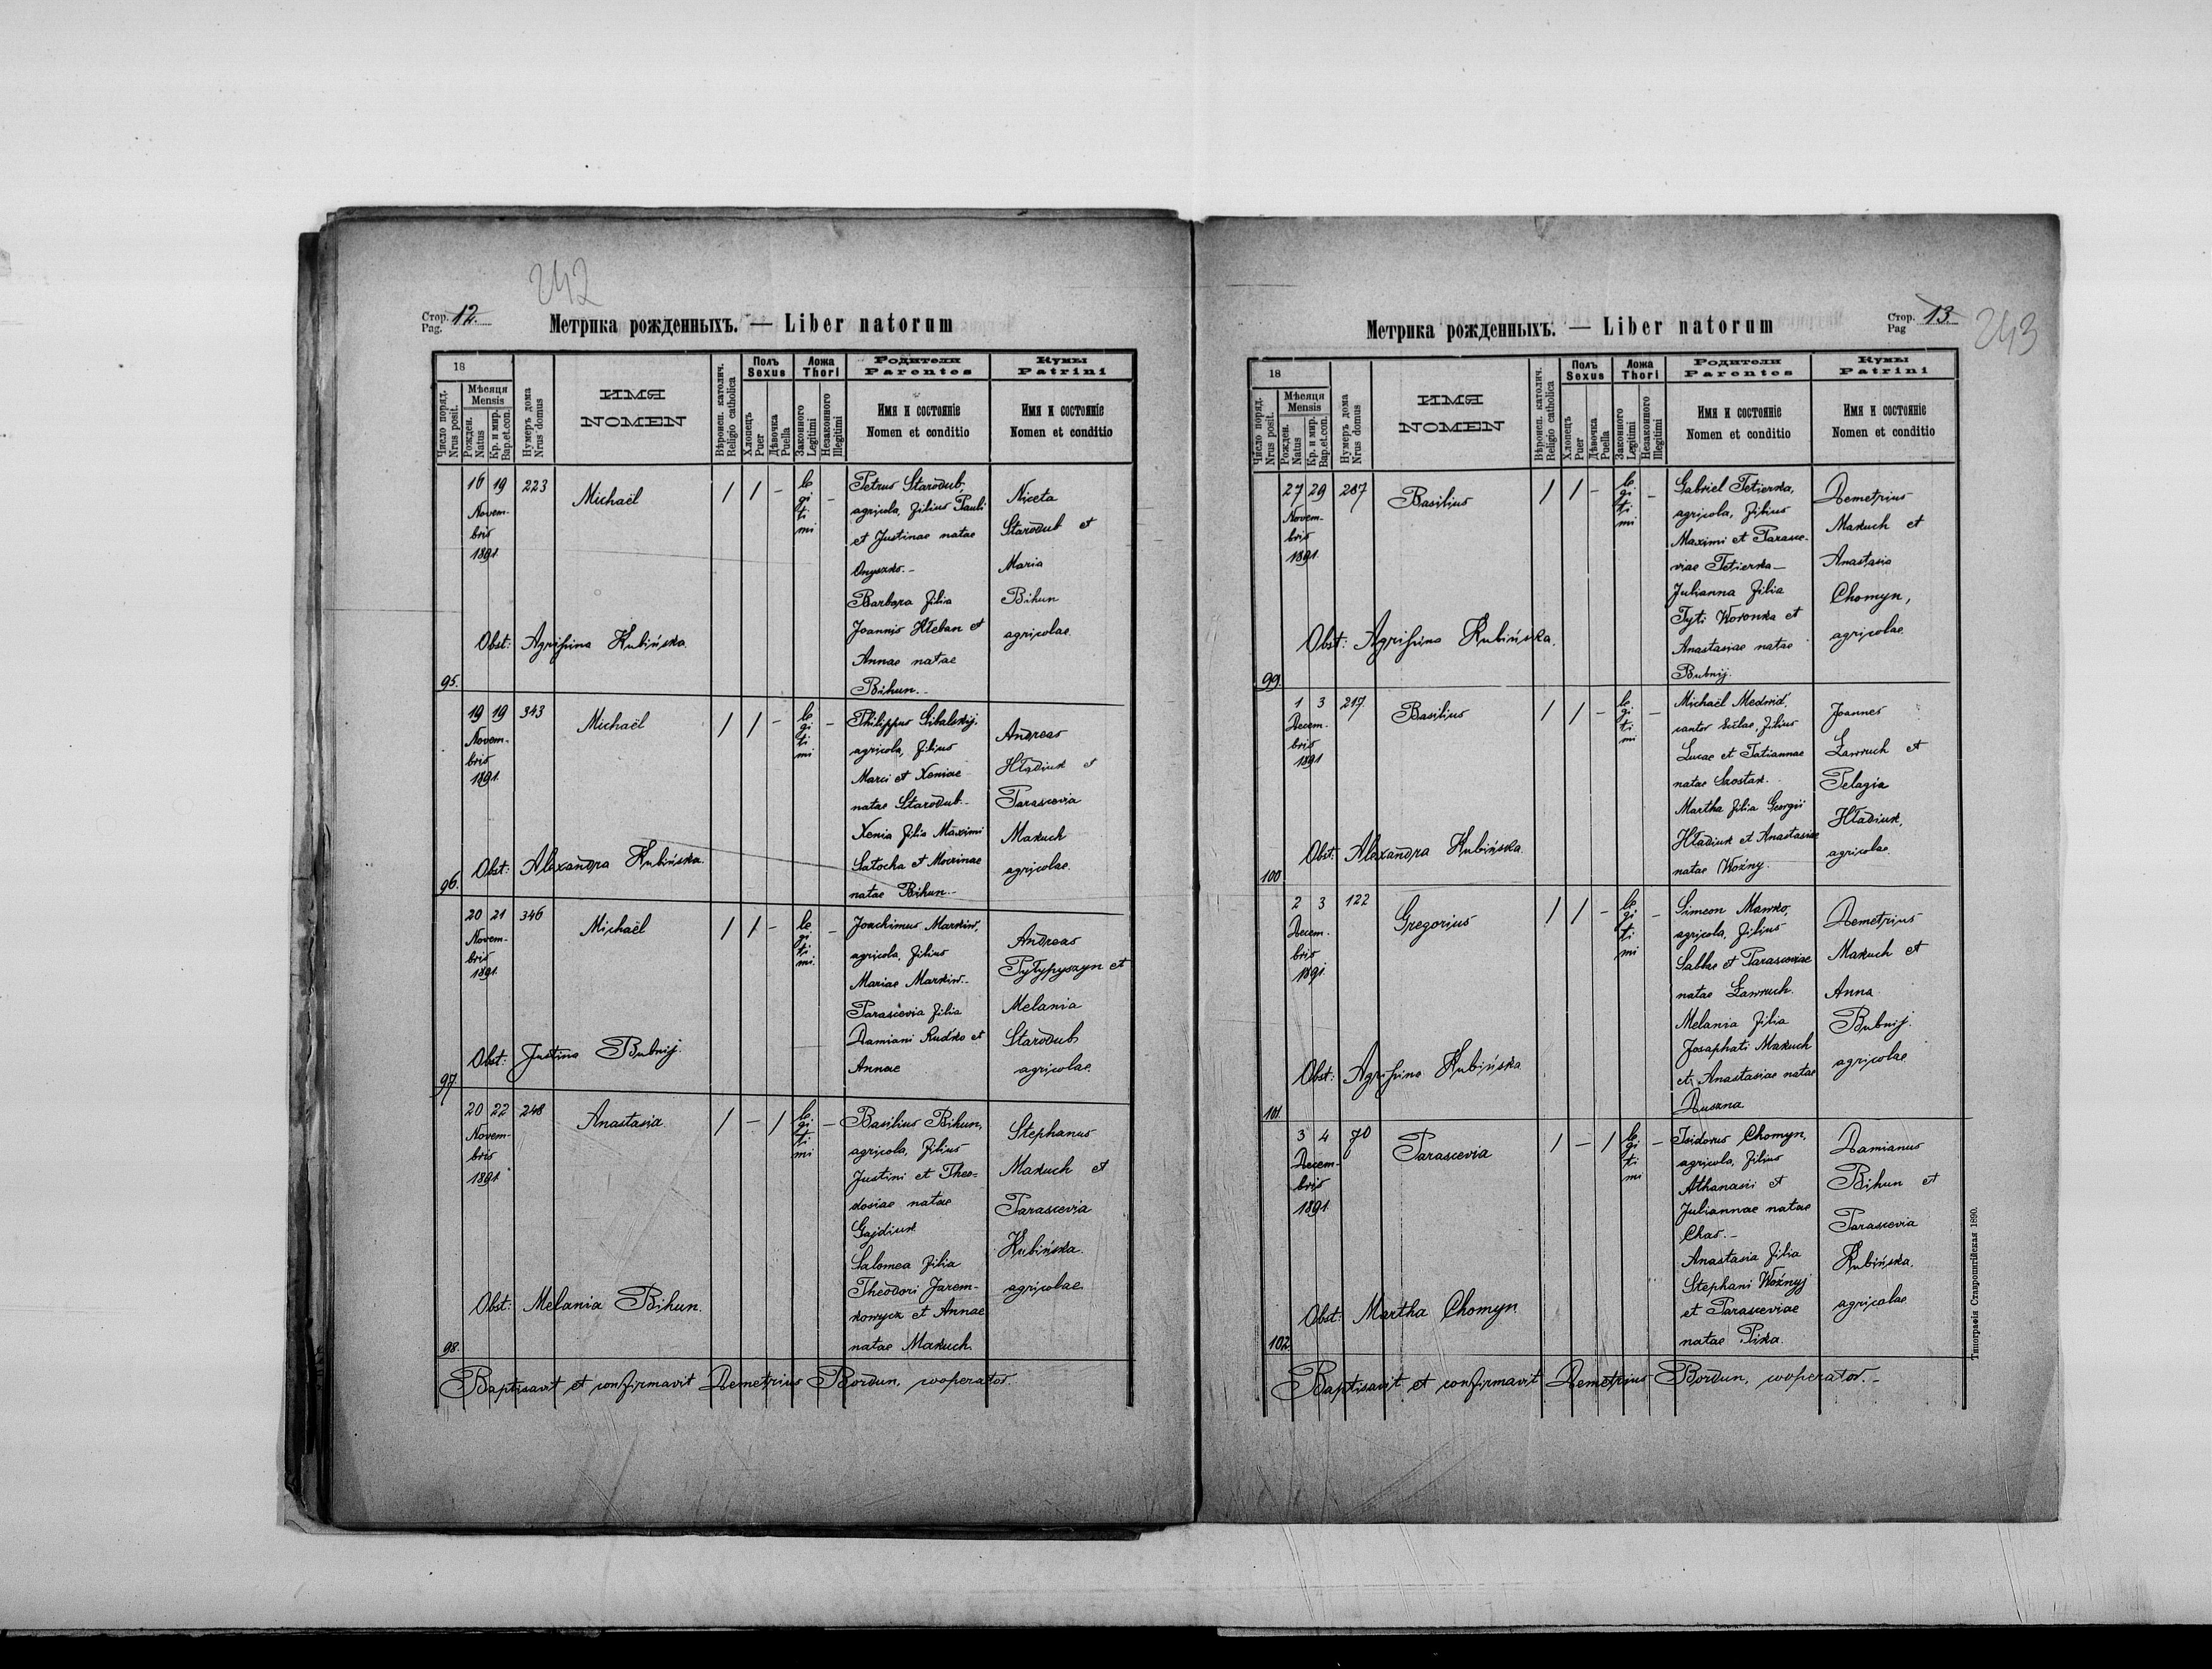 242
Стор. 12.
Pag.
Метрика рожденныхъ. — Liber natorum
18
Мѣсяця
Mensis
Число поряд.
Nrus posit.
Рожден.
Natus
Кр. и мир.
Bap. et. con.
Нумеръ дома
Nrus domus
ИМЯ
NOMEN
Вѣроисп. католич.
Religio catholica
Полъ
Sexus
Хлопецъ
Puer
Дѣвочка
Puella
Ложа
Thori
Законного
Legitimi
Незаконного
Illegitimi
Родители
Parentes
Имя и состояніе
Nomen et conditio
Кумы
Patrini
Имя и состояніе
Nomen et conditio
95.
16 19 223
Novem-
bris
1891.
Michaël
/ / - -
le
gi
ti
mi
Petrus Starodub,
agricola, filius Pauli
et Justinae natae
Onyszko. -
Barbara filia
Joannis Hleban et
Annae natae
Bihun. -
Niceta
Starodub et
Maria
Bihun
agricolae.
Obst: Agrifina Kubińska.
96.
19 19 343
Novem-
bris
1891.
Michaël
/ / - -
le
gi
ti
mi
Philippus Sibalskij,
agricola, filius
Marci et Xeniae
natae Starodub. -
Xenia filia Maximi
Satocha et Mocrinae
natae Bihun. -
Andreas
Hładiuk et
Parascevia
Makuch
agricolae.
Obst: Alexandra Kubińska.
97.
20 21 346
Novem-
bris
1891.
Michaël
/ / - -
le
gi
ti
mi.
Joachimus Markiw,
agricola, filius
Mariae Markiw. -
Parascevia filia
Damiani Rudko et
Annae
Andreas
Pyłypyszyn et
Melania
Starodub
agricolae.
Obst: Justina Bubnij.
98.
20 22 248
Novem-
bris
1891.
Anastasia
/ - / -
le
gi
ti
mi
Basilius Bihun,
agricola, filius
Justini et Theo-
dosiae natae
Gajdiuk
Salomea filia
Theodori Jarem-
kowycz et Annae
natae Makuch.
Stephanus
Makuch et
Parascevia
Kubińska.
agricolae.
Obst: Melania Bihun.
Baptisavit et confirmavit Demetrius Bordun, cooperator.
Стор. 13.
Pag
243
Метрика рожденныхъ. — Liber natorum
18
Мѣсяця
Mensis
Число поряд.
Nrus posit.
Рожден.
Natus
Кр. и мир.
Bap. et. con.
Нумеръ дома
Nrus domus
ИМЯ
NOMEN
Вѣроисп. католич.
Religio catholica
Полъ
Sexus
Хлопецъ
Puer
Дѣвочка
Puella
Ложа
Thori
Законного
Legitimi
Незаконного
Illegitimi
Родители
Parentes
Имя и состояніе
Nomen et conditio
Кумы
Patrini
Имя и состояніе
Nomen et conditio
99.
27 29 287
Novem-
bris
1891.
Basilius
/ / - -
le
gi
ti
mi
Gabriel Tetierka,
agricola, filius
Maximi et Parasce-
viae Tetierka -
Julianna filia
Tyti Woronka et
Anastasiae natae
Bubnij.
Demetrius
Makuch et
Anastasia
Chomyn,
agricolae.
Obst: Agrifina Kubińska.
100
1 3 217
Decem-
bris
1891
Basilius
/ / - -
le
gi
ti
mi
Michaël Medwid,
cantor eccl​ae, filius
Lucae et Tatiannae
natae Szostak.
Martha filia Georgii
Hładiuk et Anastasiae
natae Woźny.
Joannes
Ławruch et
Pelagia
Hładiuk,
agricolae.
Obst: Alexandra Kubińska.
101.
2 3 122
Decem-
bris
1891.
Gregorius
/ / - -
le
gi
ti
mi
Simeon Mawko,
agricola, filius
Sabbae et Parasceviae
natae Ławruch.
Melania filia
Josaphati Makuch
et Anastasiae natae
Duszna.
Demetrius
Makuch et
Anna
Bubnij.
agricolae
Obst: Agrifina Kubińska.
102.
3 4 70
Decem-
bris
1891.
Parascevia
/ - / -
le
gi
ti
mi
Isidorus Chomyn,
agricola, filius
Athanasii et
Juliannae natae
Chas. -
Anastasia filia
Stephani Woźnyj
et Parasceviae
natae Pika.
Damianus
Bihun et
Parascevia
Kubińska,
agricolae.
Obst: Martha Chomyn.
Baptisavit et confirmavit Demetrius Bordun, cooperator. -
Типографія Ставропигійская 1890.